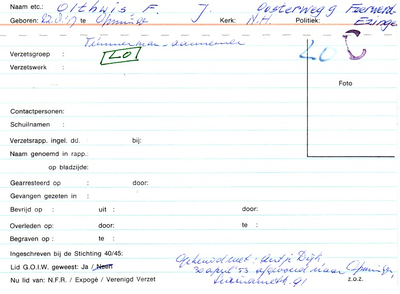 Naam etc.: Olthuis F. J. Oosterweg 9 Feerwerd-Ezinge
Geboren: te Opwierde Kerk: N.H. Politiek:
Timmerman - aannemer
Verzetsgroep : LO LO C
Verzetswerk :
Foto
Contactpersonen:
Schuilnamen :
Verzetsrapp. ingel. dd. bij:
Naam genoemd in rapp.:
op bladzijde:
Gearresteerd op : door:
Gevangen gezeten in :
Bevrijd op : uit : door:
Overleden op : door: te :
Begraven op : te :
Ingeschreven bij de Stichting 40/45: Gehuwd met: Antje Dijk
Lid G.O.I.W. geweest: Ja / Neen 30 april '53 afgevoerd naar
Nu lid van: N.F.R. / Expogé / Verenigd Verzet z.o.z.